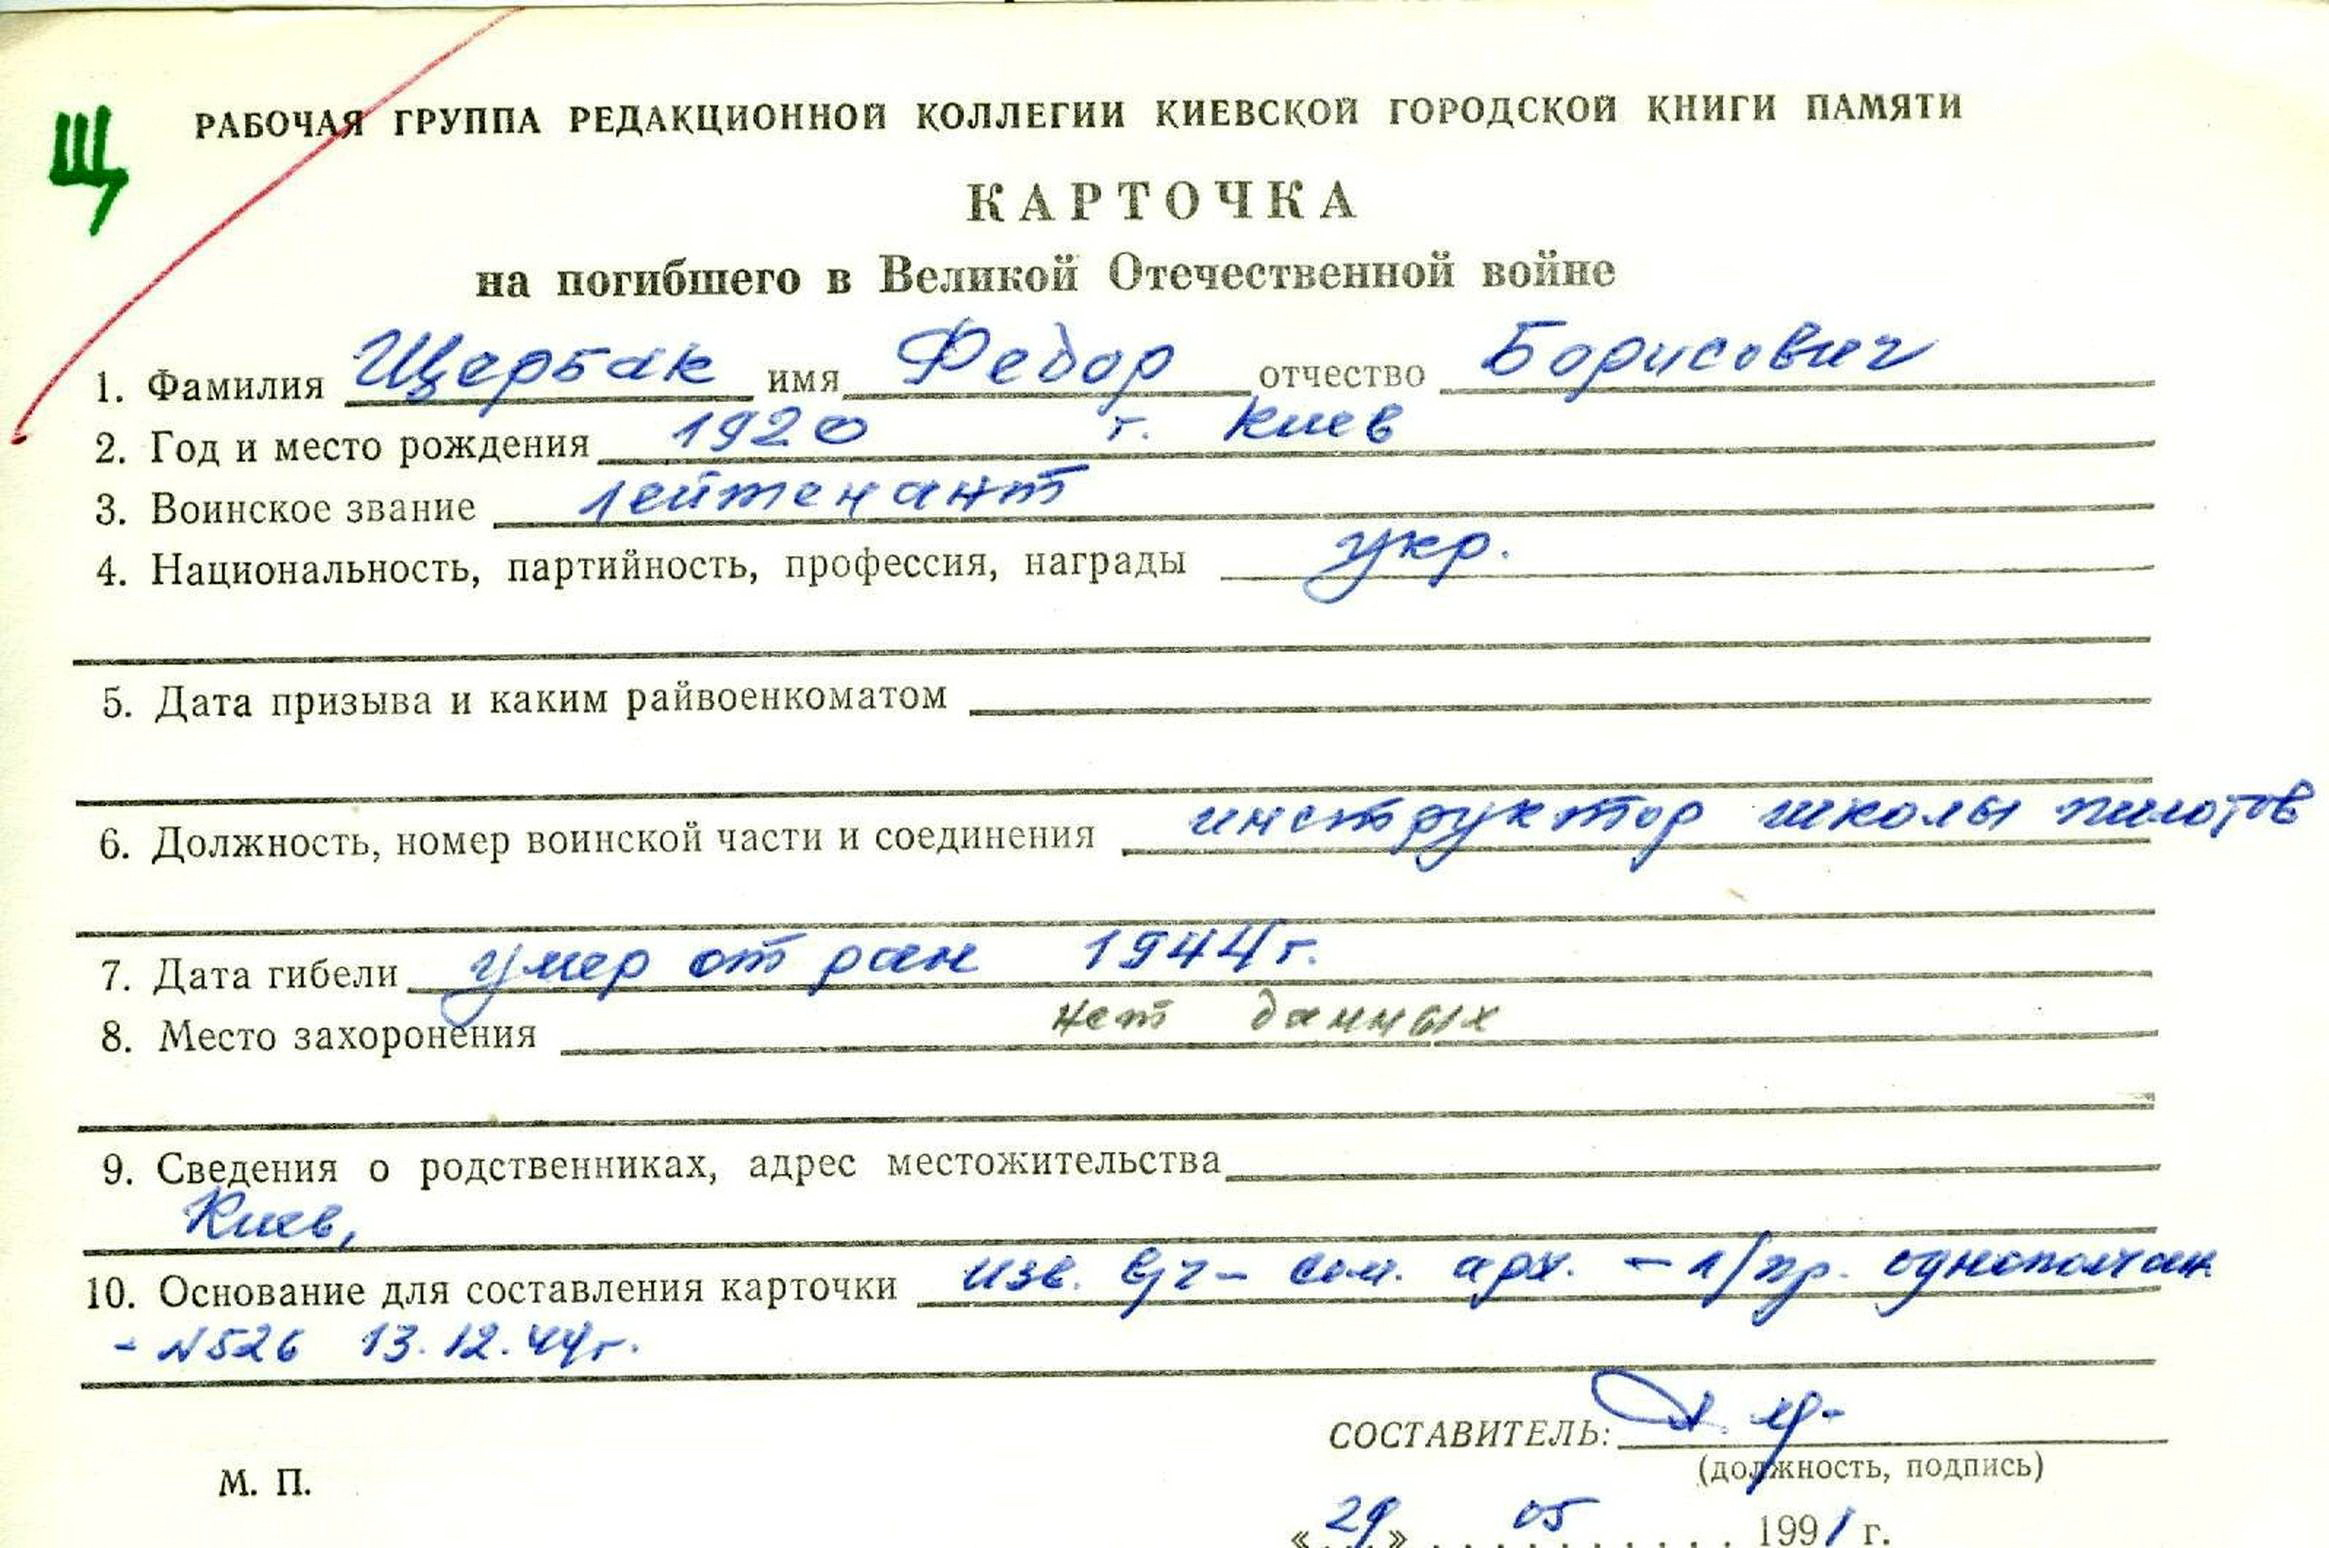 Щ
РАБОЧАЯ ГРУППА РЕДАКЦИОННОЙ КОЛЛЕГИИ КИЕВСКОЙ ГОРОДСКОЙ КНИГИ ПАМЯТИ
КАРТОЧКА
на погибшего в Великой Отечественной войне
1. Фамилия Щербак имя Федор отчество Борисович
2. Год и место рождения 1920 г. Киев
3. Воинское звание лейтенант
4. Национальность, партийность, профессия, награды укр.
5. Дата призыва и каким райвоенкоматом
6. Должность, номер воинской части и соединения инструктор школы пилотов
7. Дата гибели умер от ран 1944 г.
8. Место захоронения нет данных
9. Сведения о родственниках, адрес местожительства
Киев,
10. Основание для составления карточки изв. в/ч - сем. арх. - л/пр. однополчан
- N526 13.12.44г.
СОСТАВИТЕЛЬ:
(должность, подпись)
М. П.
«29» 05 1991 г.